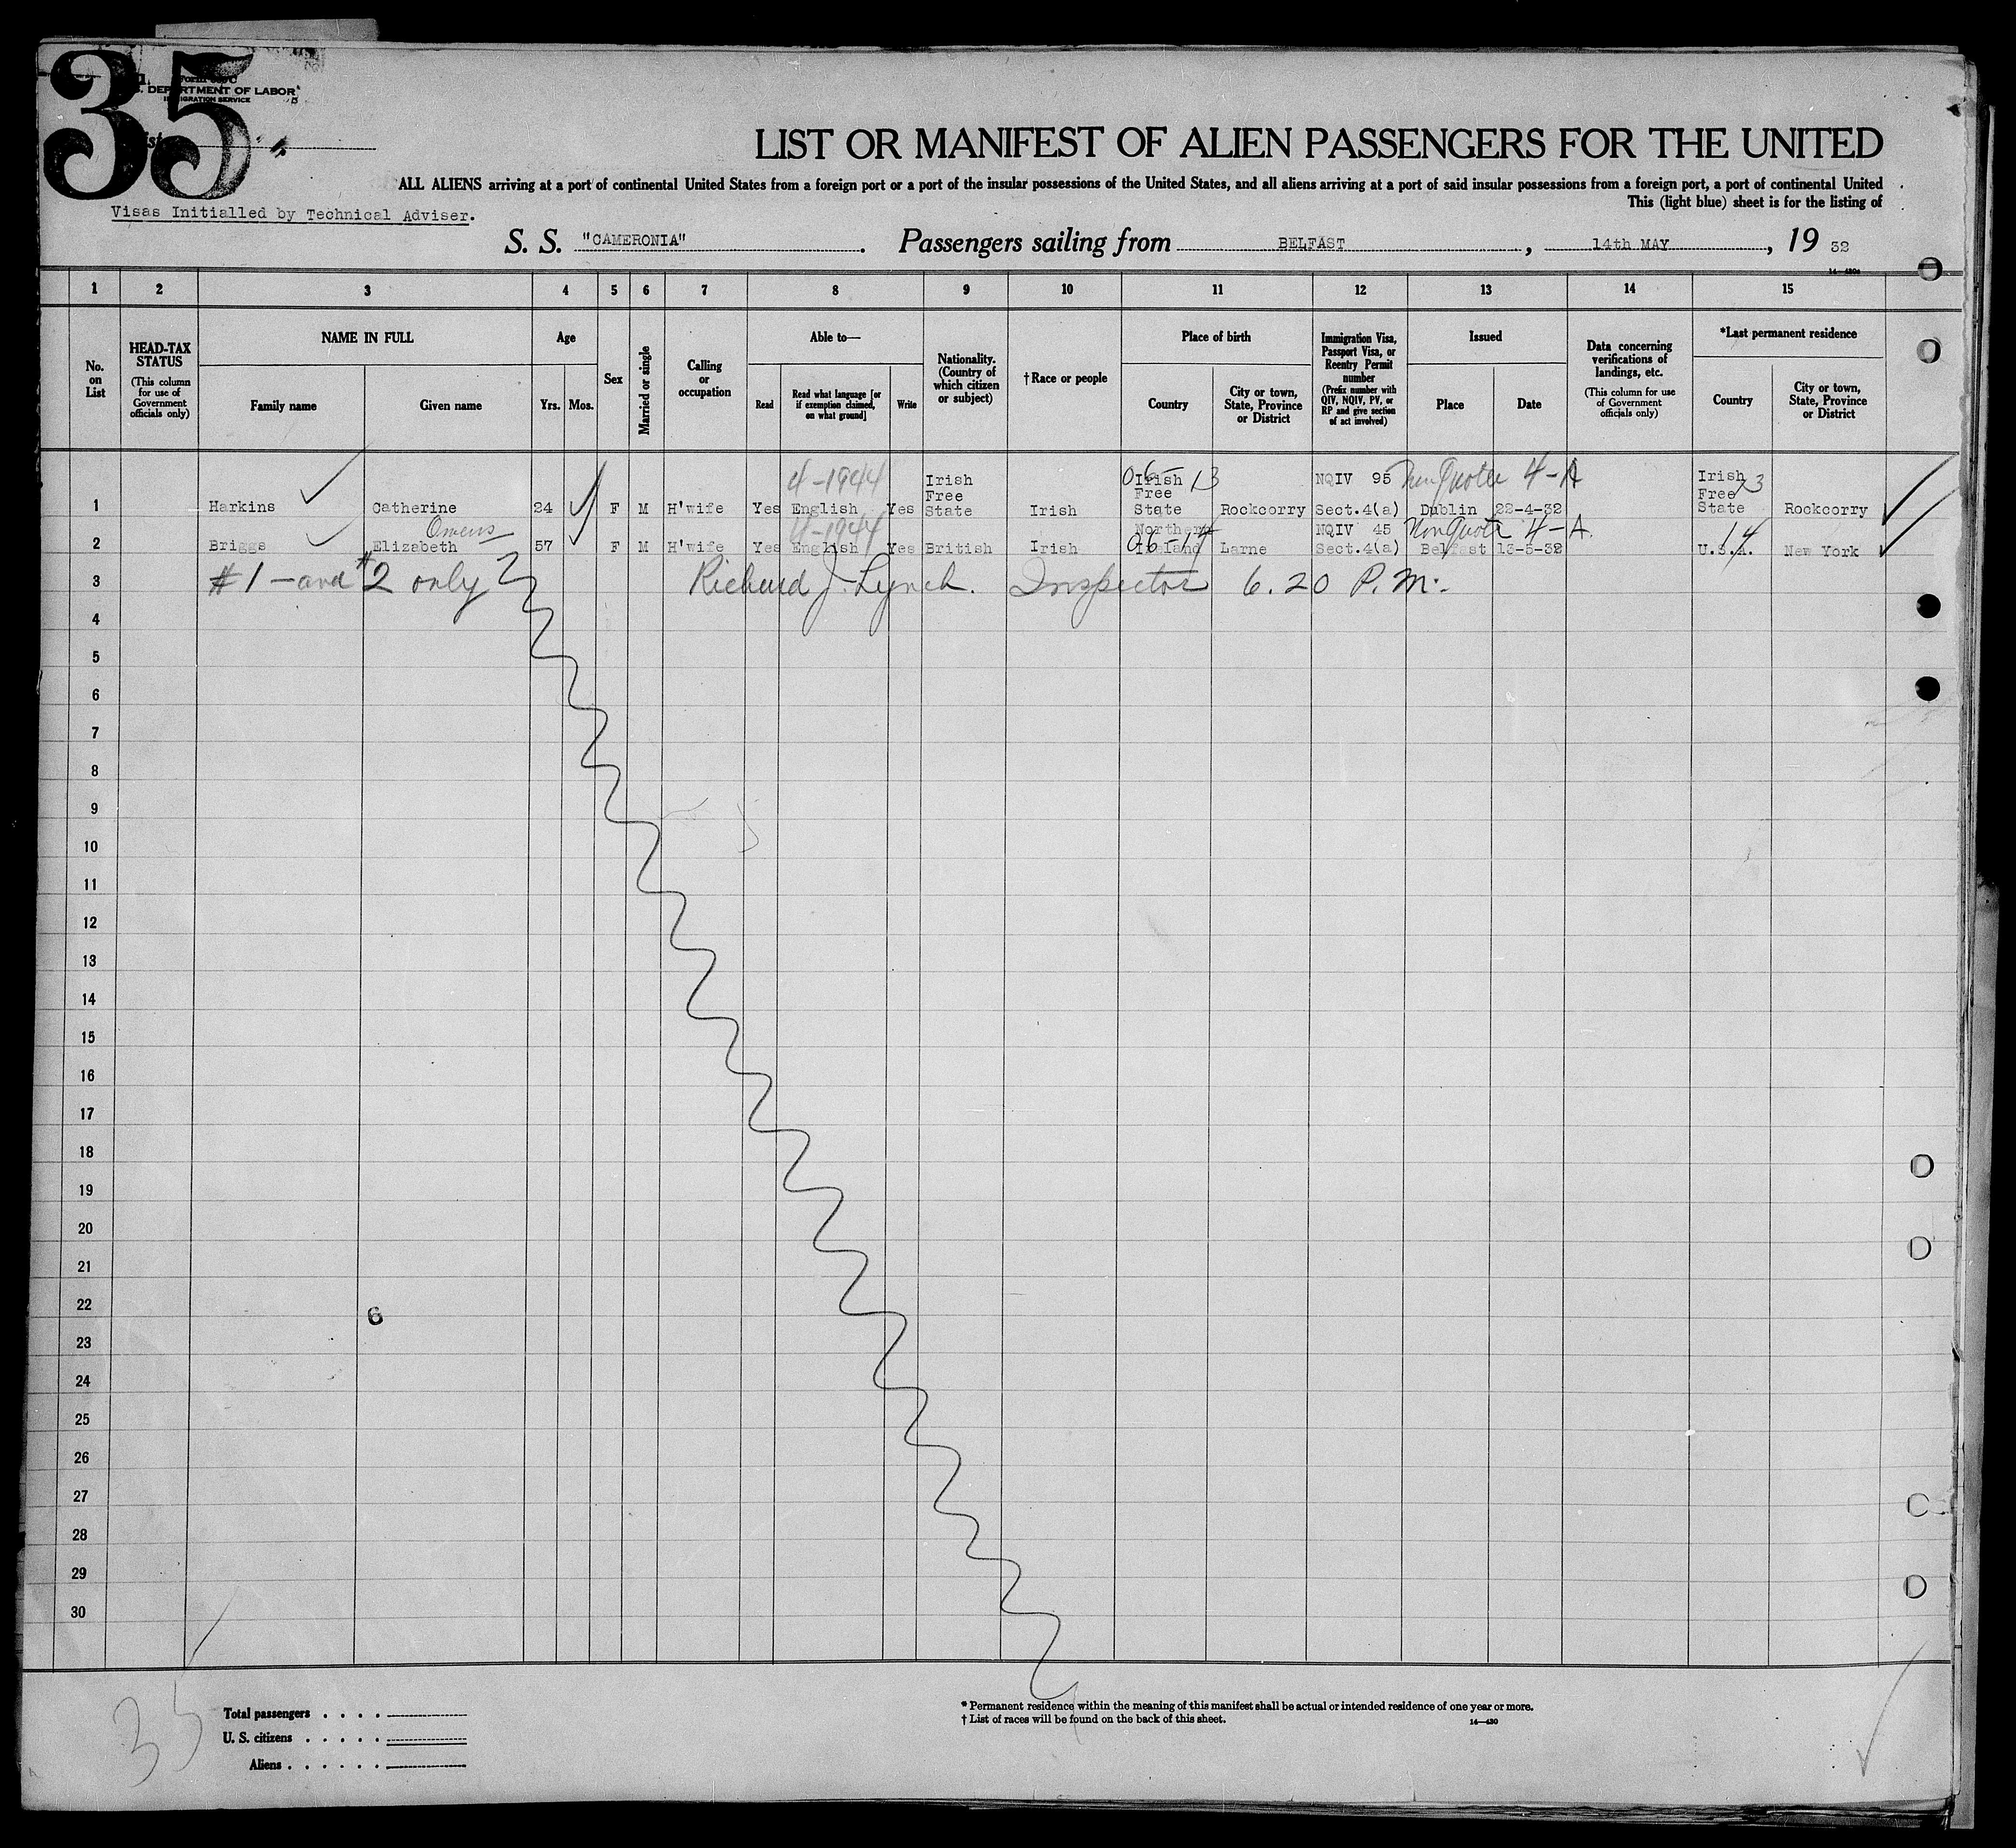 35
DEPARTMENT OF LABOR
IMMIGRATION SERVICE
List
LIST OR MANIFEST OF ALIEN PASSENGERS FOR THE UNITED
ALL ALIENS arriving at a port of continental United States from a foreign port or a port of the insular possessions of the United States, and all aliens arriving at a port of said insular possessions from a foreign port, a port of continental United
This (light blue) sheet is for the listing of
Visas Initialled by Technical Adviser.
S. S. "CAMERONIA". Passengers sailing from BELFAST, 14th MAY, 19 32
1 2 3 4 5 6 7 8 9 10 11 12 13 14 15
No. on List
HEAD-TAX STATUS
(This column for use of Government officials only)
NAME IN FULL
Family name Given name
Age
Yrs. Mos.
Sex
Married or single
Calling or occupation
Able to—
Read
Read what language [or if exemption claimed, on what ground]
Write
Nationality. (Country of which citizen or subject)
†Race or people
Place of birth
Country
City or town, State, Province or District
Immigration Visa, Passport Visa, or Reentry Permit number
(Prefix number with QIV, NQIV, PV, or RP and give section of act involved)
Issued
Place Date
Data concerning verifications of landings, etc.
(This column for use of Government officials only)
*Last permanent residence
Country
City or town, State, Province or District
4-1944 06-13 Non Quota 4-A
1 Harkins Catherine 24 F M H'wife Yes English Yes Irish Free State Irish Irish Free State Rockcorry NQIV 95 Sect.4(a) Dublin 22-4-32 Irish Free State Rockcorry
Owens 4-1944 06-14 Non Quota 4-A. 14
2 Briggs Elizabeth 57 F M H'wife Yes English Yes British Irish Northern Ireland Larne NQIV 45 Sect.4(a) Belfast 13-5-32 U.S.A. New York
3 #1 - and #2 only Richard J. Lynch. Inspector 6.20 P.M.
4
5
6
7
8
9
10
11
12
13
14
15
16
17
18
19
20
21
22 6
23
24
25
26
27
28
29
30
35
Total passengers . . . .
U. S. citizens . . . . .
Aliens . . . . . .
* Permanent residence within the meaning of this manifest shall be actual or intended residence of one year or more.
† List of races will be found on the back of this sheet.
14—430